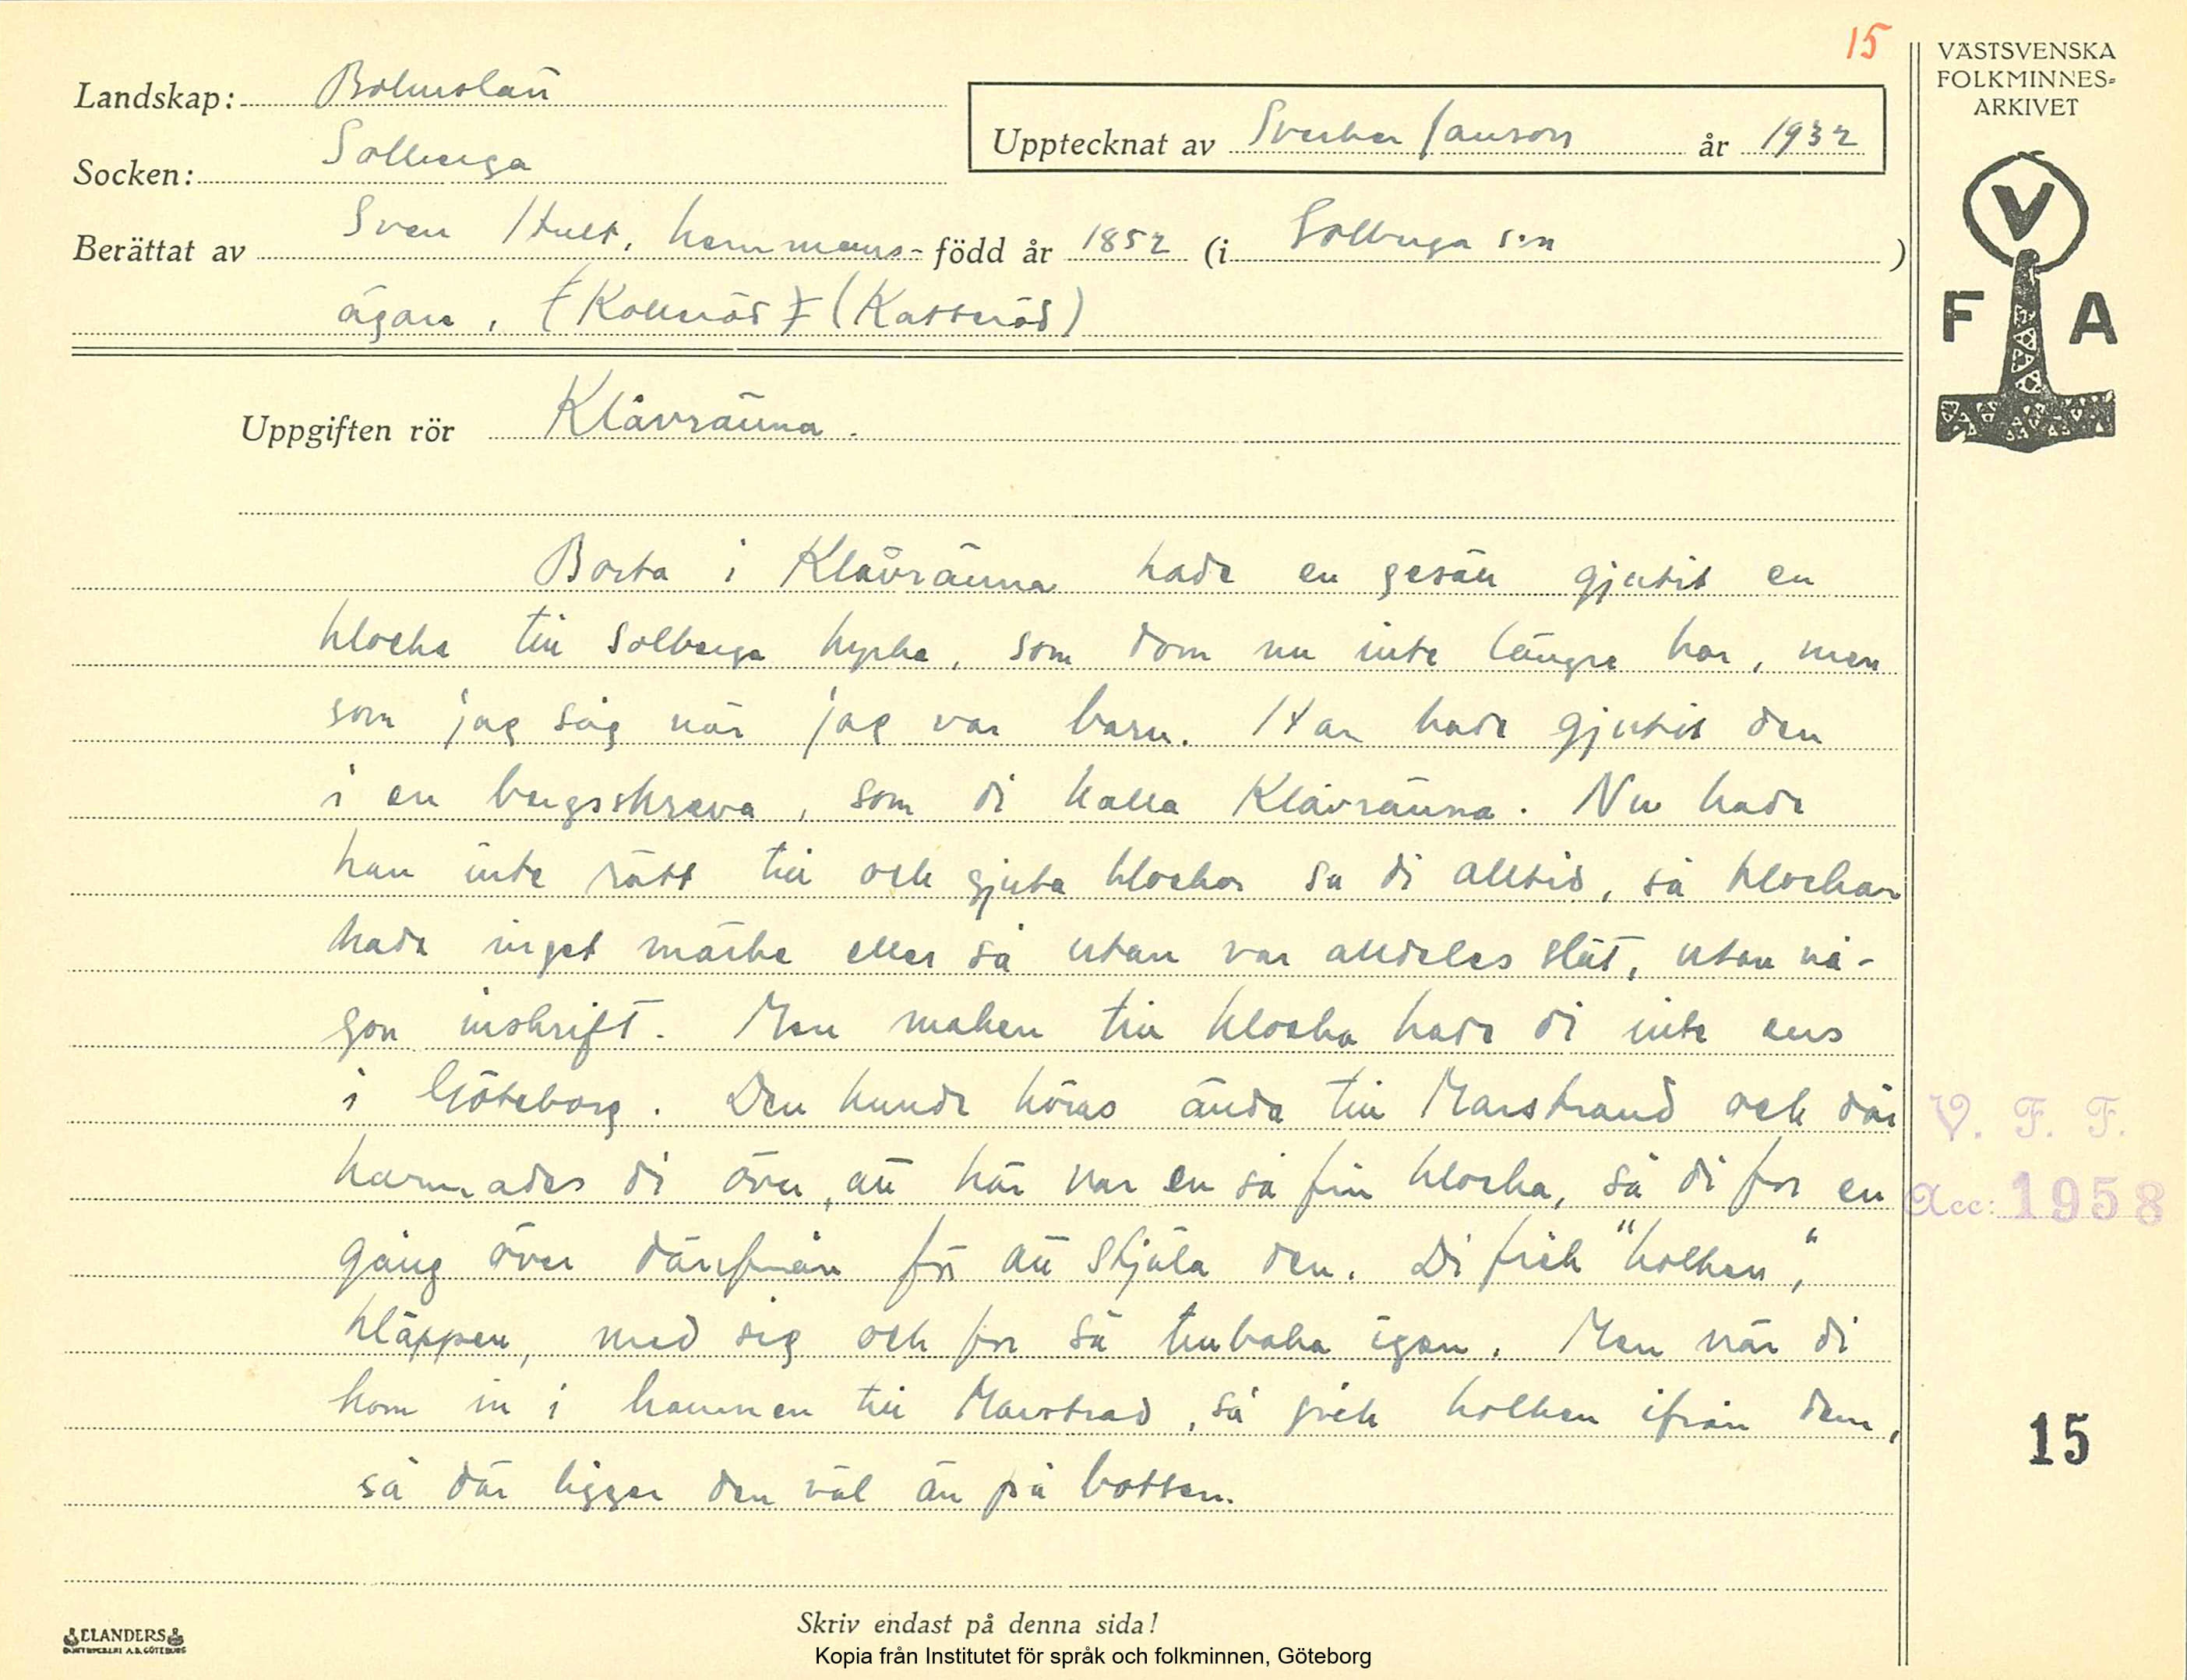 15
VÄSTSVENSKA
FOLKMINNES-
ARKIVET
Landskap: Bohuslän
Upptecknat av Sverker Janson år 1932
Socken: Solberga
Berättat av Sven Hult, hemmans- född år 1852 (i Solberga s:n )
ägare, (Kolleröd) (Katteröd)
V
F A
Uppgiften rör Klåvränna.
Borta i Klåvränna hade en gesäll gjutit en
klocka till Solberga kyrka, som dom nu inte längre har, men
som jag såg när jag var barn. Han hade gjutit den
i en bergsskreva, som di kalla Klåvränna. Nu hade
han inte rätt till och gjuta klockor sa di alltid, så klockan
hade inget märke eller så utan var alldeles slät, utan nå-
gon inskrift. Men maken till klocka hade di inte ens
i Göteborg. Den kunde höras ända till Marstrand och där
harmades di över, att här var en så fin klocka, så di for en
gång över därifrån för att stjäla den. Di fick "kolken",
kläppen, med sig och for så tillbaka igen. Men när di
kom in i hamnen till Marstrad, så gick kolken ifrån dem,
så där ligger den väl än på botten.
V. F. F.
Acc: 1958
15
Skriv endast på denna sida!
ELANDERS
BOKTRYCKERI A.B. GÖTEBORG
Kopia från Institutet för språk och folkminnen, Göteborg